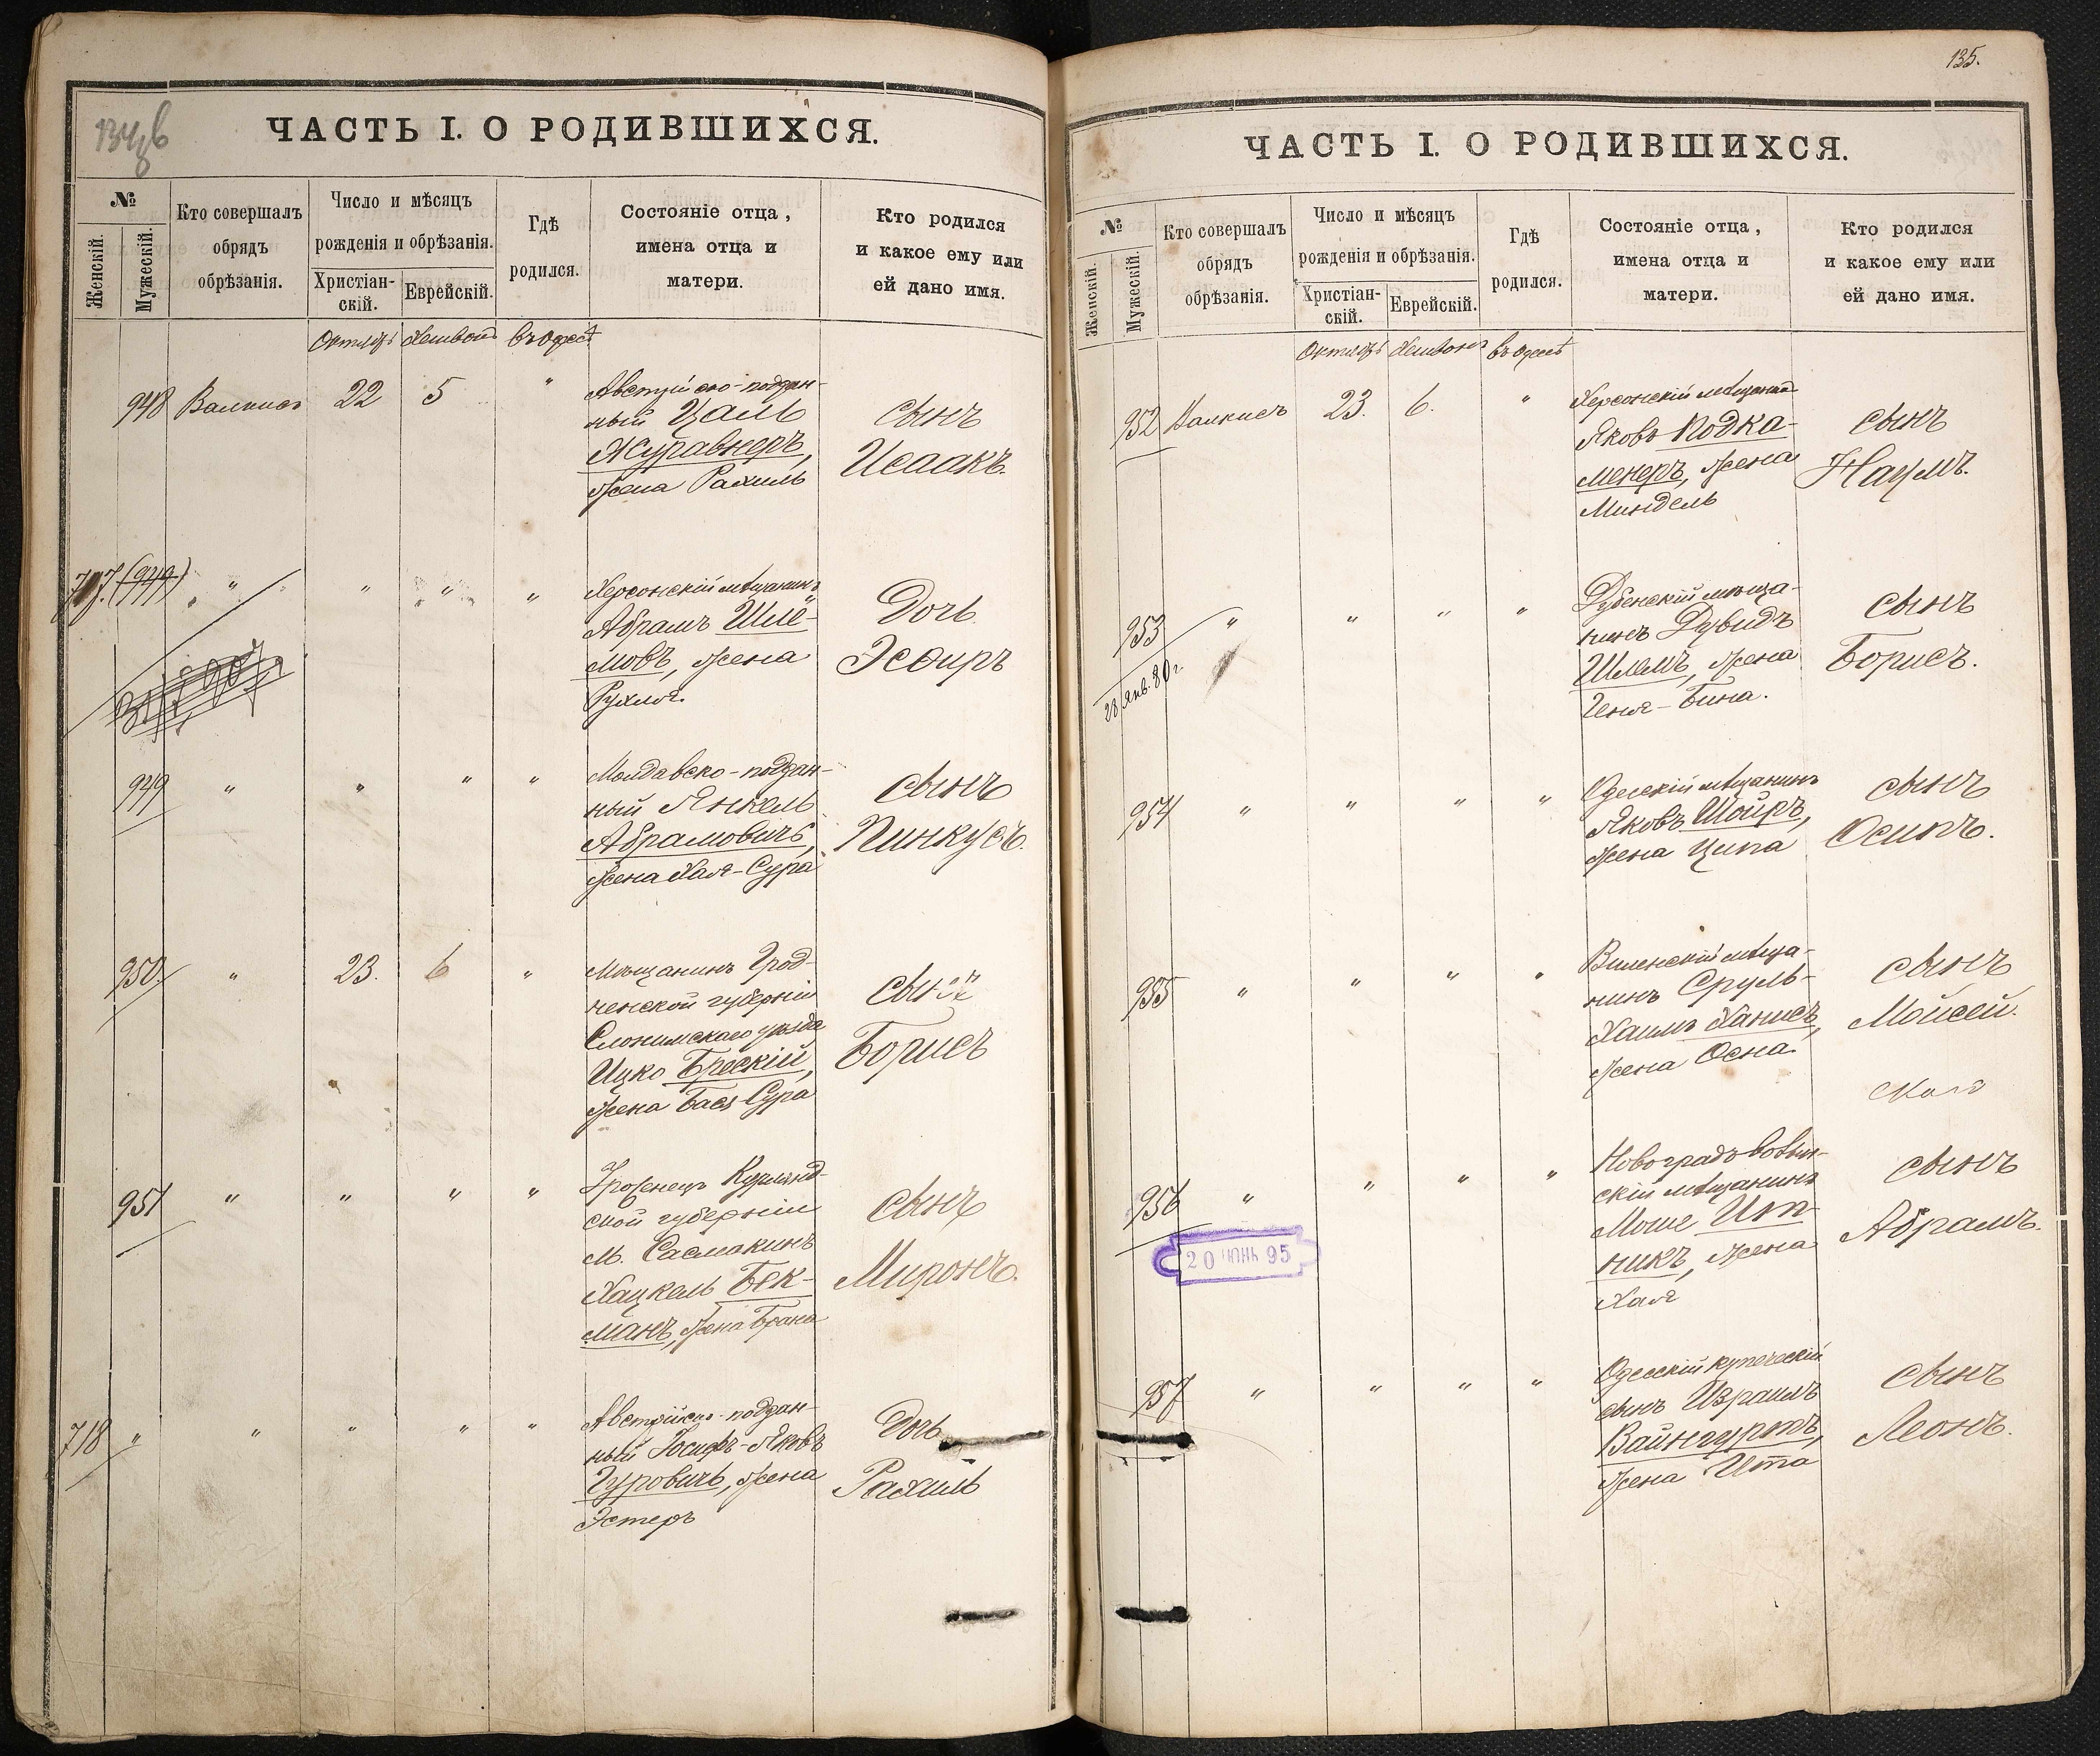 ЧАСТЬ I. О РОДИВШИХСЯ.
№
Женскій.
Мужескій.
Кто совершалъ
обрядъ
обрѣзанія.
Число и мѣсяцъ
рожденія и обрѣзанія.
Христіан-
скій.
Еврейскій.
Гдѣ
родился.
Состояніе отца,
имена отца и
матери.
Кто родился
и какое ему или
ей дано имя.
Октябрь въ Одессѣ
948 22 5 "
Австрійско-поддан-
ный Цаль
Журавнеръ,
жена Рахиль
сынъ
Исаакъ.
717. (949) " " " "
Херсонскій мѣщанинъ
Абрамъ Шлё-
мовъ, жена
Рухля.
Дочь
Эсѳирь
949 " " " "
Молдавско-поддан-
ный Янкель
Абрамовичъ,
жена Хая-Сура
сынъ
Пинкусъ.
950. " 23. 6 "
Мѣщанинъ Грод-
ненской губерніи
Слонимскаго уѣзда
Ицко Брескій,
жена Бася-Сура
сынъ
Борисъ
951 " " " "
Курлянд-
ской губерніи
м. Сасмакинъ
Хацкель Бек-
манъ, жена
сынъ
Миронъ.
718 " " " " "
Австрійско-поддан-
ный Іосифъ-Яковъ
Гуровичъ, жена
Эстеръ
Дочь
Рахиль
135.
ЧАСТЬ I. О РОДИВШИХСЯ.
№
Женскій.
Мужескій.
Кто совершалъ
обрядъ
обрѣзанія.
Число и мѣсяцъ
рожденія и обрѣзанія.
Христіан-
скій.
Еврейскій.
Гдѣ
родился.
Состояніе отца,
имена отца и
матери.
Кто родился
и какое ему или
ей дано имя.
Октябрь въ Одессѣ
952 23. 6. "
Херсонскій мѣщанинъ
Яковъ Подка-
менеръ, жена
Миндель
сынъ
Наумъ.
953 " " " "
28 Янв. 80 г.
Дубенскій мѣща-
нинъ Дувидъ
Шлемъ, жена
Геня-Бина.
сынъ
Борисъ.
954 " " " "
Одесскій мѣщанинъ
Яковъ Шойръ,
жена Ципа
сынъ
Осипъ.
955 " " " "
Виленскій мѣща-
нинъ Сруль-
Хаимъ Ханисъ,
жена Осна.
сынъ
Мойсей.
956 " " " "
20 ІЮНЬ 95
Новоградъ-волын-
скій мѣщанинъ
Моше Ит-
никъ, жена
Хая
сынъ
Абрамъ.
957 " " " "
Одесскій купеческій
сынъ Израиль
Вайнгуртъ,
жена Ита
сынъ
Леонъ.